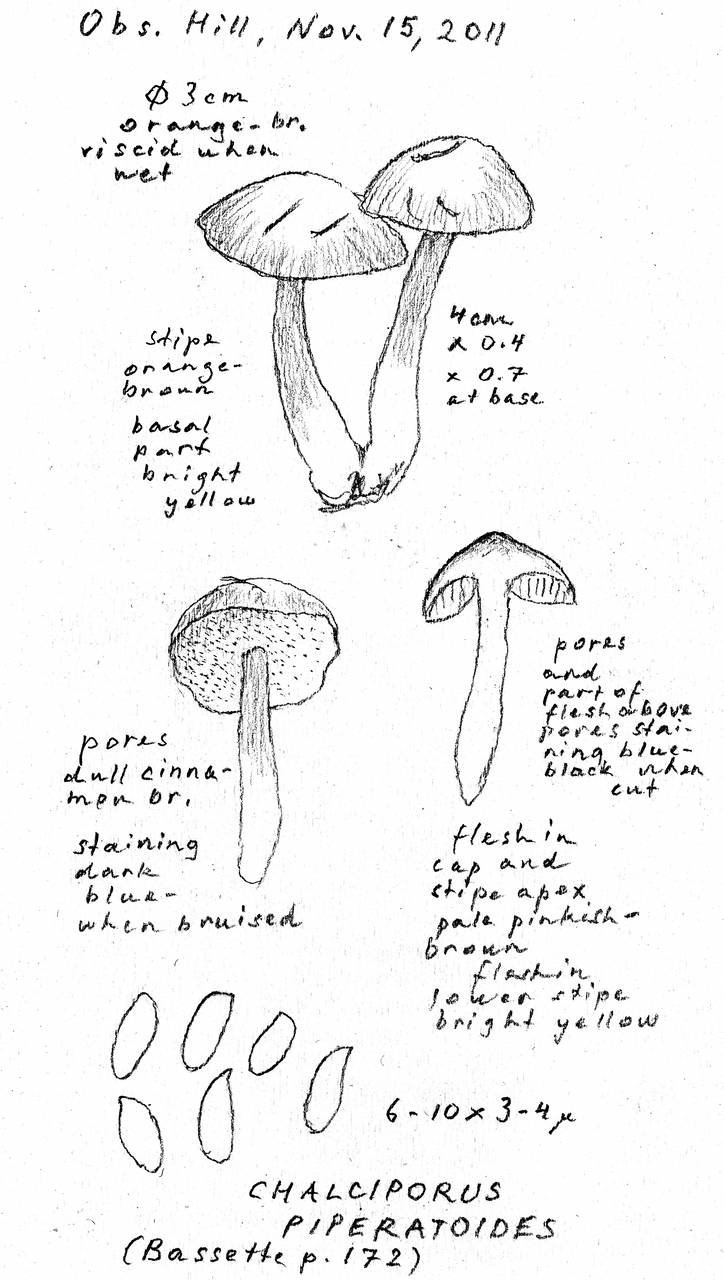 Obs. Hill, Nov. 15, 2011
Ø 3 cm
orange-br.
viscid when
wet
stipe
orange-
brown
basal
part
bright
yellow
4 cm
x 0.4
x 0.7
at base
pores
dull cinna-
mon br.
staining
dark
blue-
when bruised
pores
and
part of
flesh above
pores stai-
ning blue-
black when
cut
flesh in
cap and
stipe apex
pale pinkish-
brown
flesh in
lower stipe
bright yellow
6-10 x 3-4 µ
CHALCIPORUS
PIPERATOIDES
(Bassette p. 172)